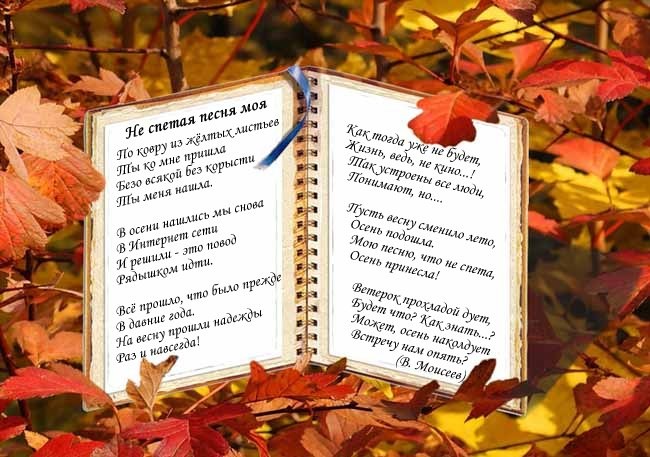 Не спетая песня моя
По ковру из жёлтых листьев
Ты ко мне пришла
Безо всякой без корысти
Ты меня нашла.
В осени нашлись мы снова
В Интернет сети
И решили - это повод
Рядышком идти.
Всё прошло, что было прежде
В давние года.
На весну прошли надежды
Раз и навсегда!
Как тогда уже не будет,
Жизнь, ведь, не кино...!
Так устроены все люди,
Понимают, но....
Пусть весну сменило лето,
Осень подошла.
Мою песню, что не спета,
Осень принесла!
Ветерок прохладой дует,
Будет что? Как знать...?
Может, осень наколдует
Встречу нам опять?
(В. Моисеев)